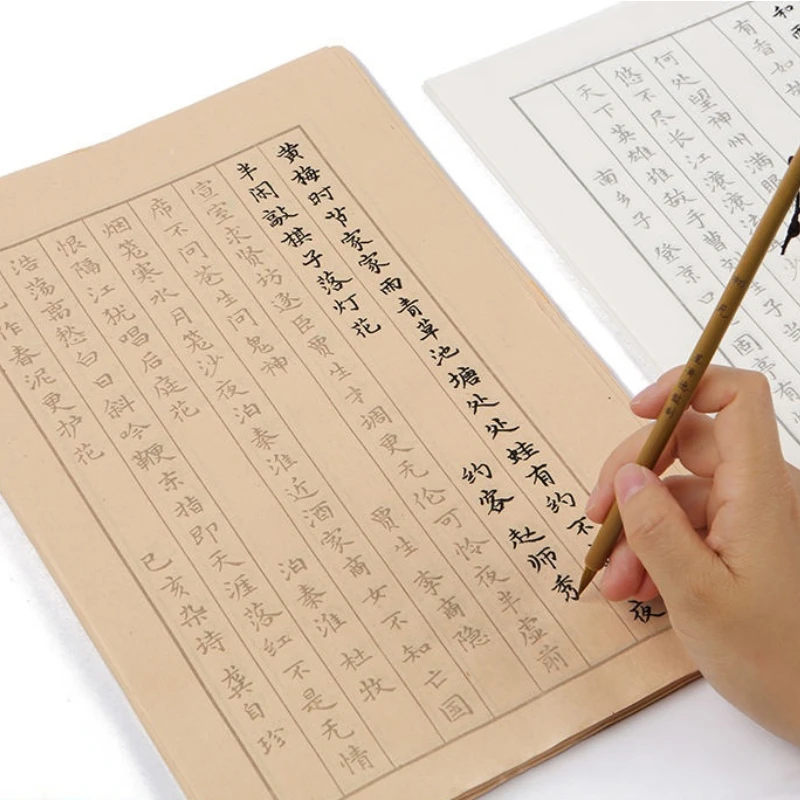 和
有香如故
何处望神州满眼
悠不尽长江滚滚流
天下英雄谁敌手曹刘 子当
南乡子 登京口 固亭有
黄梅时节家家雨青草池塘处处蛙有约不 夜
半闲敲棋子落灯花 约客 赵师秀
宣室求贤访逐臣贾生才调更无伦可怜夜半虚前
席不问苍生问鬼神 贾生 李商隐
烟笼寒水月笼沙夜泊秦淮近酒家商女不知亡国
恨隔江犹唱后庭花 泊秦淮 杜牧
浩荡离愁白日斜吟鞭东指即天涯落红不是无情
作春泥更护花 己亥杂诗 龚自珍